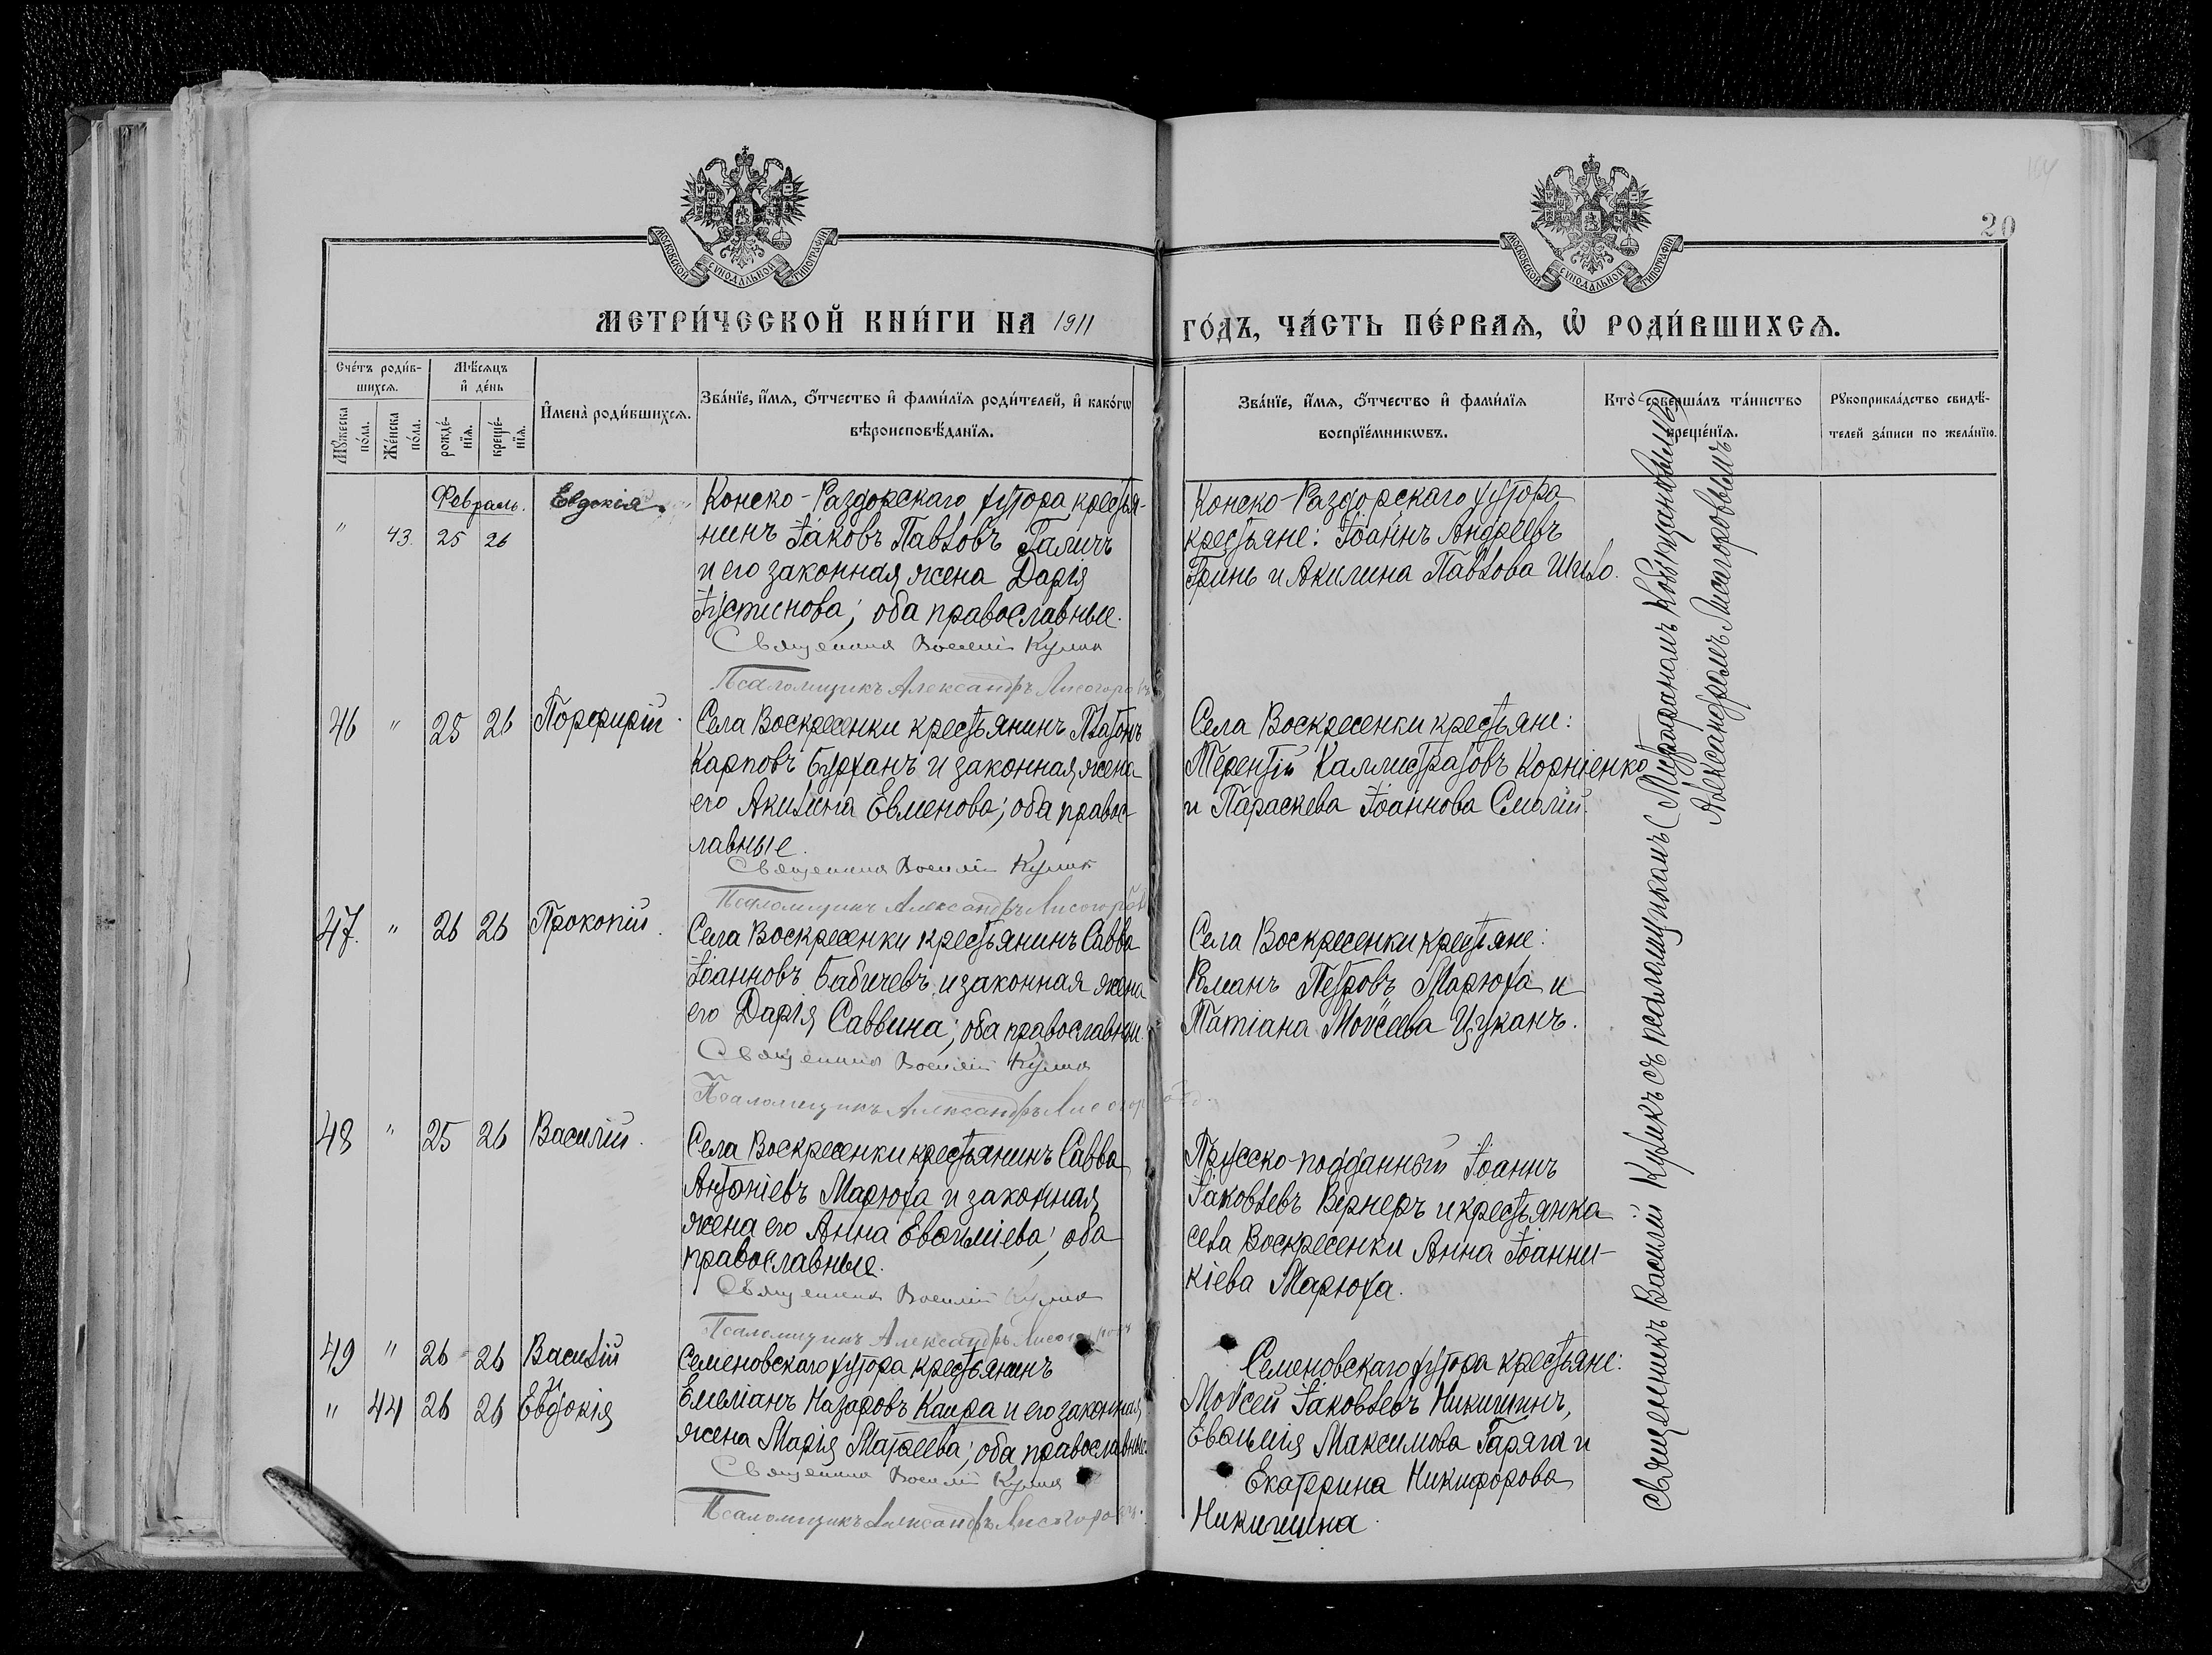 154
20
МОСКОВСКОЙ СѴНОДАЛЬНОЙ ТИПОГРАФІИ
МОСКОВСКОЙ СѴНОДАЛЬНОЙ ТИПОГРАФІИ
МЕТРИ́ЧЕСКОЙ КНИ́ГИ НА 1911
ГО́ДЪ, ЧА́СТЬ ПЕ́РВАѦ, Ѡ҆ РОДИ́ВШИХСѦ.
Сче́тъ роди́в-
шихсѧ.
Мѣ́сѧцъ
и҆ де́нь
Мꙋ́жеска
по́ла.
Же́нска
по́ла.
рожде́-
нїѧ.
креще́-
нїѧ.
И҆мена̀ роди́вшихсѧ.
Зва́нїе, и҆́мѧ, ѻ҆́тчество и҆ фами́лїѧ роди́телей, и҆ како́гѡ
вѣроисповѣ́данїѧ.
Зва́нїе, и҆́мѧ, ѻ҆́тчество и҆ фами́лїѧ
воспрїе́мникѡвъ.
Кто̀ соверша́лъ та́инство
креще́нїѧ.
Рꙋкоприкла́дство свидѣ́-
телей за́писи по жела́нїю.
Февраль.
" 43. 25 26
Евдокія.
Конско-Раздорскаго хутора крестья-
нинъ Іаковъ Павловъ Галичъ
и его законная жена Дарія
Іустинова; оба православные.
Священник Василій Кулик
Псаломщикъ Александръ Лисогоровъ
Конско-Раздорскаго хутора
крестьяне: Іоаннъ Андреевъ
Гринь и Акилина Павлова Шило.
46 " 25 26 Порфирій
Села Воскресенки крестьянинъ Платонъ
Карповъ Бурханъ и законная жена
его Акилина Евменова; оба правос-
лавные.
Священник Василій Кулик
Псаломщикъ Александръ Лисогоровъ
Села Воскресенки крестьяне:
Терентій Каллистратовъ Корніенко
и Параскева Іоаннова Смолій.
47. " 26 26 Прокопій.
Села Воскресенки крестьянинъ Савва
Іоанновъ Бабичевъ и законная жена
его Дарія Саввина; оба православныи.
Священник Василій Кулик
Псаломщикъ Александръ Лисогоровъ.
Села Воскресенки крестьяне:
Романъ Петровъ Марюха и
Татіана Моѵсеева Цуканъ.
48 " 25 26 Василій.
Села Воскресенки крестьянинъ Савва
Антоніевъ Марюха и законная
жена его Анна Евѳиміева; оба
православные.
Священник Василій Кулик
Псаломщикъ Александръ Лисогоровъ
Прусско-подданный Іоаннъ
Іаковлевъ Вернеръ и крестьянка
села Воскресенки Анна Іоанни-
кіева Марюха.
49 " 26 26 Василій
и
" 44 26 26 Евдокія
Семеновскаго хутора крестьянинъ
Емеліанъ Назаровъ Каира и его законная
жена Марія Матѳеева; оба православные.
Священник Василій Кулик
Псаломщикъ Александръ Лисогоровъ.
Семеновскаго хутора крестьяне:
Моѵсей Іаковлевъ Никишинъ,
Евѳимія Максимова Гаряга и
Екатерина Никифорова
Никишина
Священникъ Василій Куликъ съ псаломщикамъ (Митрофаномъ Ковыцановымъ)
Александромъ Лисогоровымъ